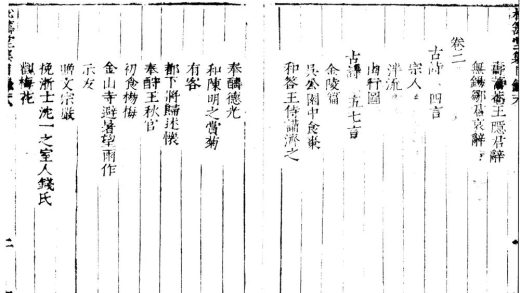 無錫鄒君哀辭
卷二
古詩 四言
宗人
泮流
山行圖
古詩 五七言
金陵篇
吳公園中食棗
和答王侍講濟之
奉酬德光
和陳明之賞菊
有客
都下將歸述懷
奉酧王秋官
初食楊梅
金山寺避暑望雨作
示友
贈文宗嚴
挽浙士沈一之室人錢氏
觀梅花